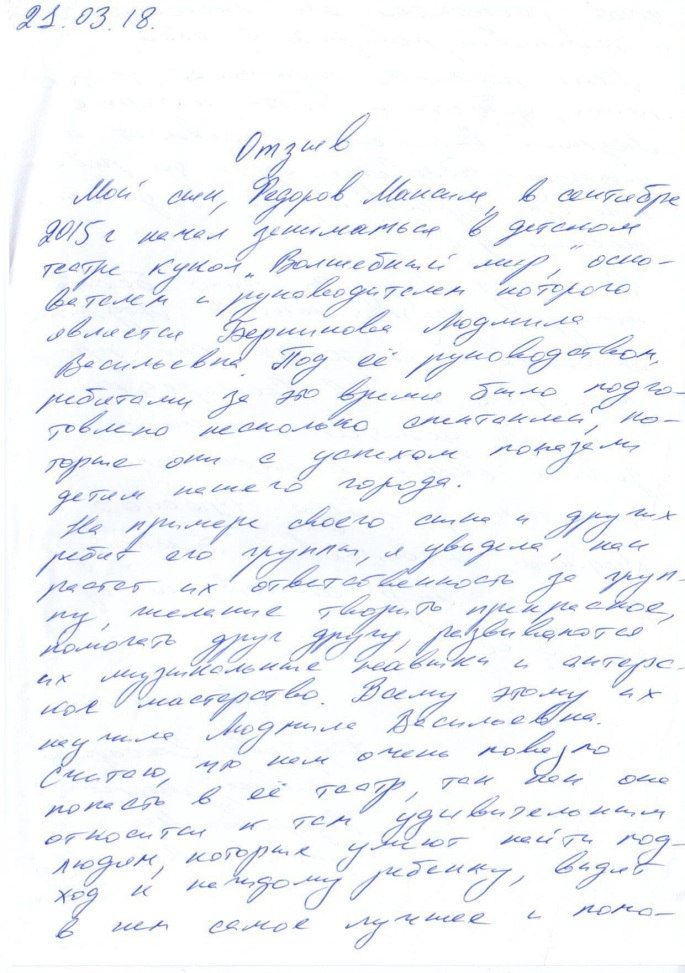 21.03.18.
Отзыв
Мой сын, Федоров Максим, в сентябре
2015 г начал заниматься в детском
театре кукол „Волшебный мир", осно-
вателем и руководителем которого
является Берникова Людмила
Васильевна. Под её руководством,
ребятами за это время было подго-
товлено несколько спектаклей, ко-
торые они с успехом показали
детям нашего города.
На примере своего сына и других
ребят его группы, я увидела, как
растет их ответственность за груп-
пу, желание творить прекрасное,
помогать друг другу, развиваются
их музыкальные навыки и актерс-
кое мастерство. Всему этому их
научила Людмила Васильевна.
Считаю, что нам очень повезло
попасть в её театр, так как она
относится к тем удивительным
людям, которые умеют найти под-
ход к каждому ребенку, видят
в нем самое лучшее и помо-